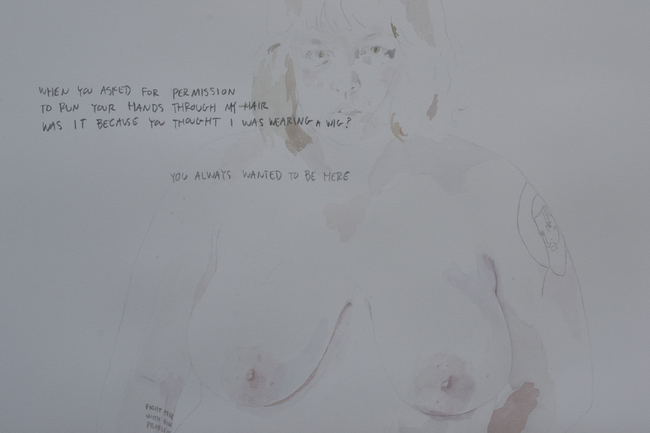 WHEN YOU ASKED FOR PERMISSION
TO RUN YOUR HANDS THROUGH MY HAIR
WAS IT BECAUSE YOU THOUGHT I WAS WEARING A WIG?
YOU ALWAYS WANTED TO BE HERE